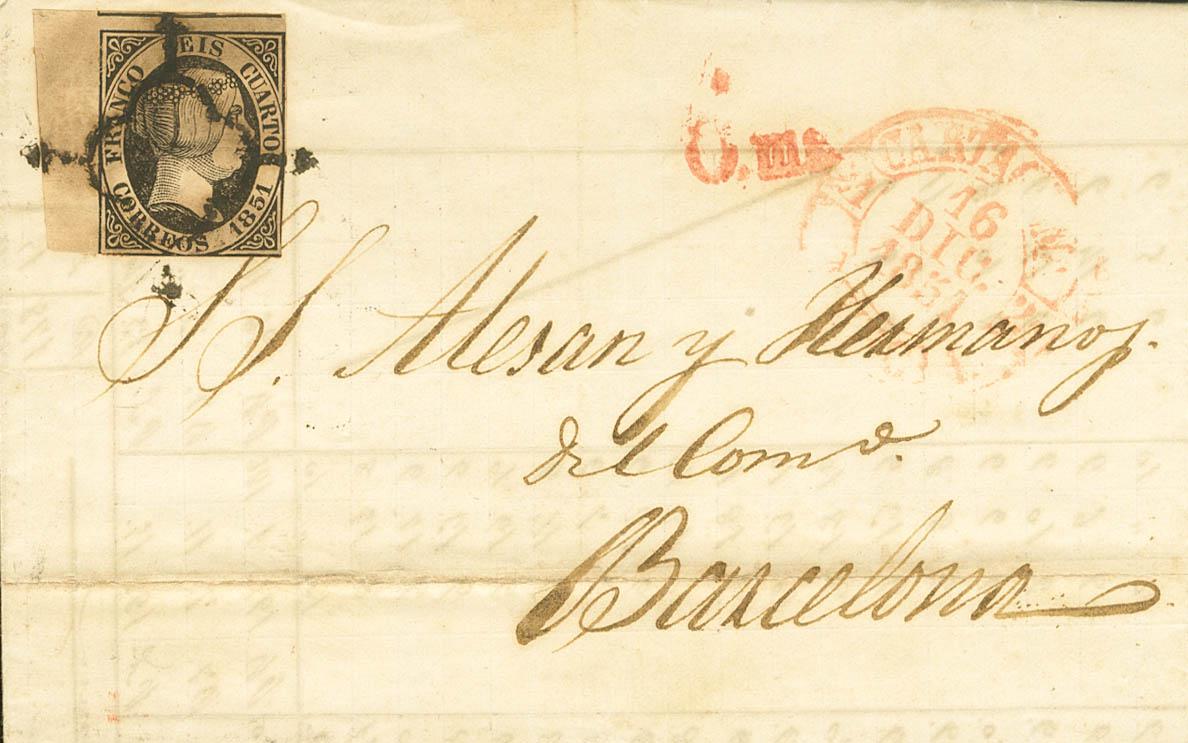 FRANCO SEIS CUARTOS
CORREOS 1851
6.ms
CARTAG
16
DIC.
1851
S S. Alesan y Hermanos.
del Com.o
Barcelona